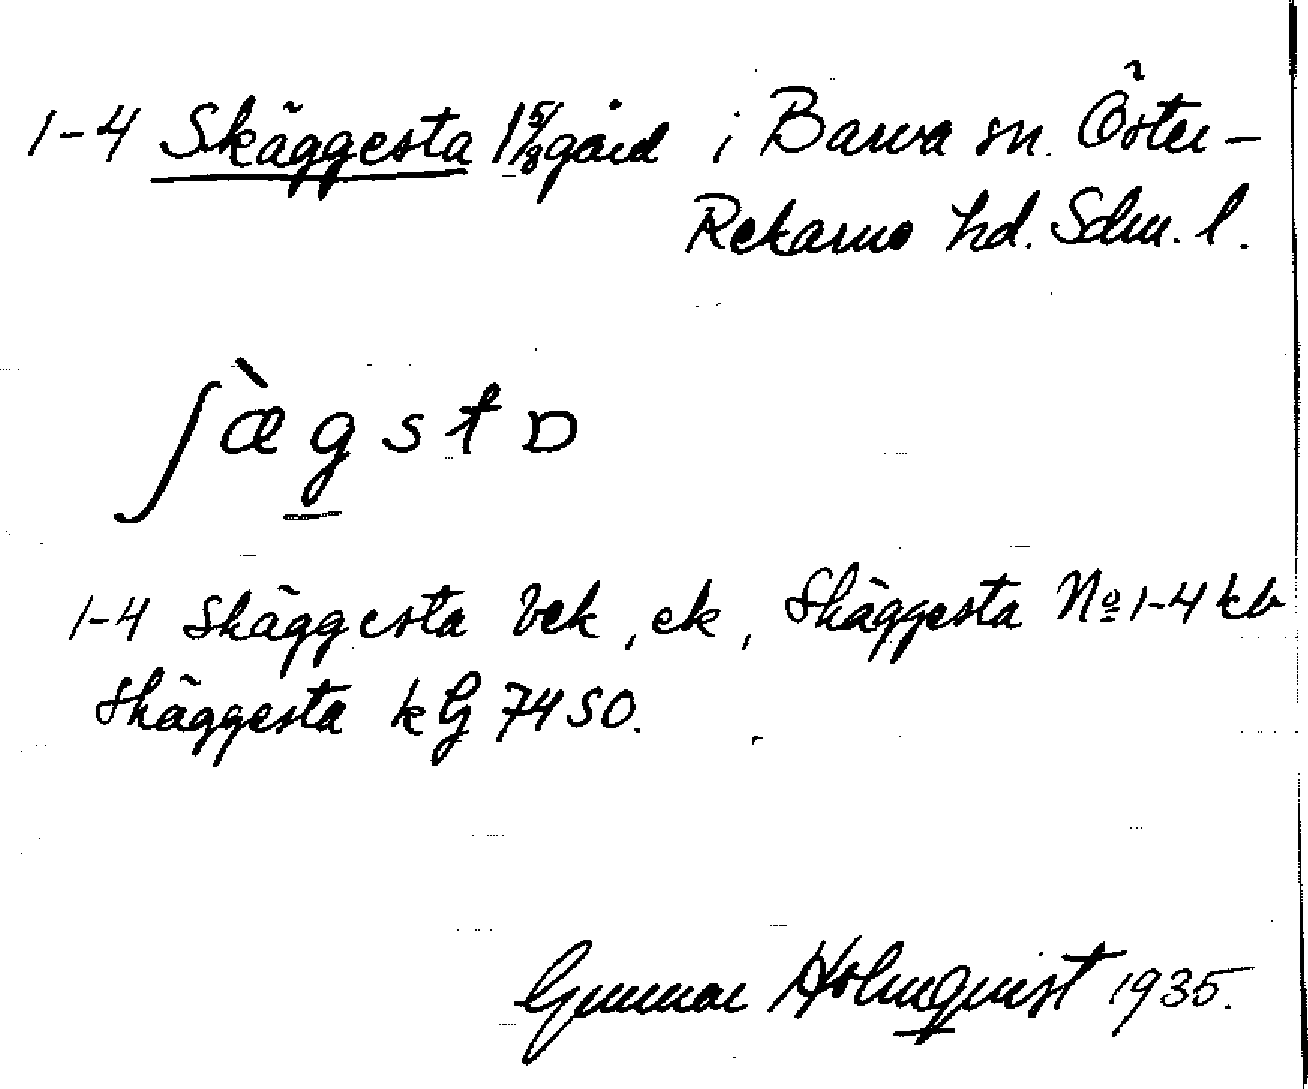 1-4 Skäggesta 1 5/8 gård i Barva sn. Öster-
Rekarne hd. Sdm. l.
ʃæ̀gsta
1-4 Skäggesta bek, ek, Skäggesta No 1-4 kb
Skäggesta kG 7450.
Gunnar Holmquist 1935.